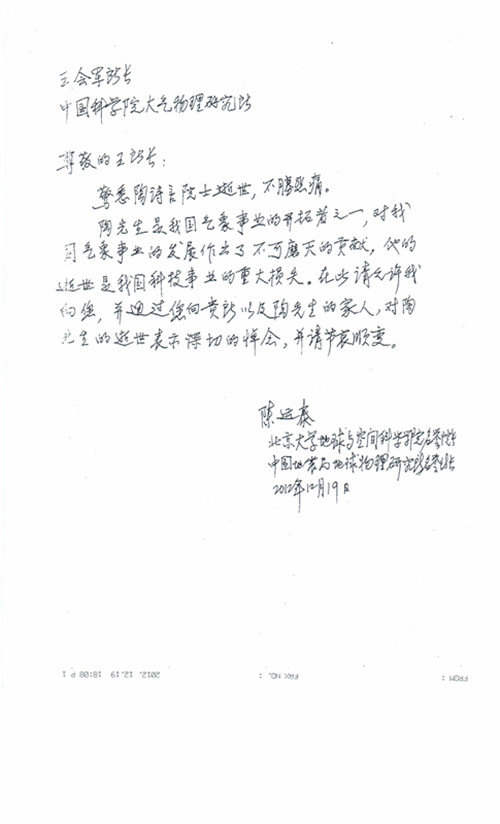 王会军所长
中国科学院大气物理研究所
尊敬的王所长:
惊悉陶诗言院士逝世,不胜悲痛。
陶先生是我国气象事业的开拓者之一,对我
国气象事业的发展作出了不可磨灭的贡献。他的
逝世是我国科技事业的重大损失。在此请允许我
向您,并通过您向贵所以及陶先生的家人,对陶
先生的逝世表示深切的悼念,并请节哀顺变。
陈运泰
北京大学地球与空间科学学院名誉院长
中国地震局地球物理研究所名誉所长
2012年12月19日
FROM : FAX NO. : 2012. 12. 19 18:08 P 1